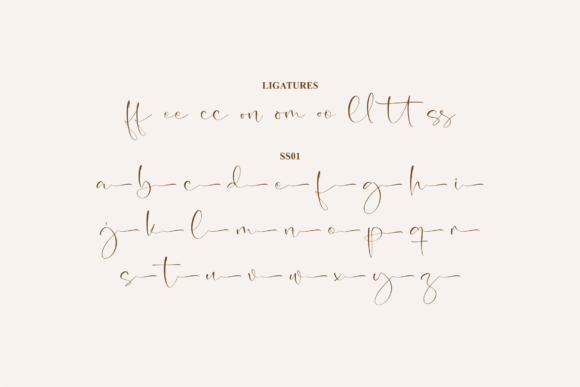 LIGATURES
ff ee cc on om oo ll tt ss
SS01
a b c d e f g h i
j k l m n o p q r
s t u v w x y z